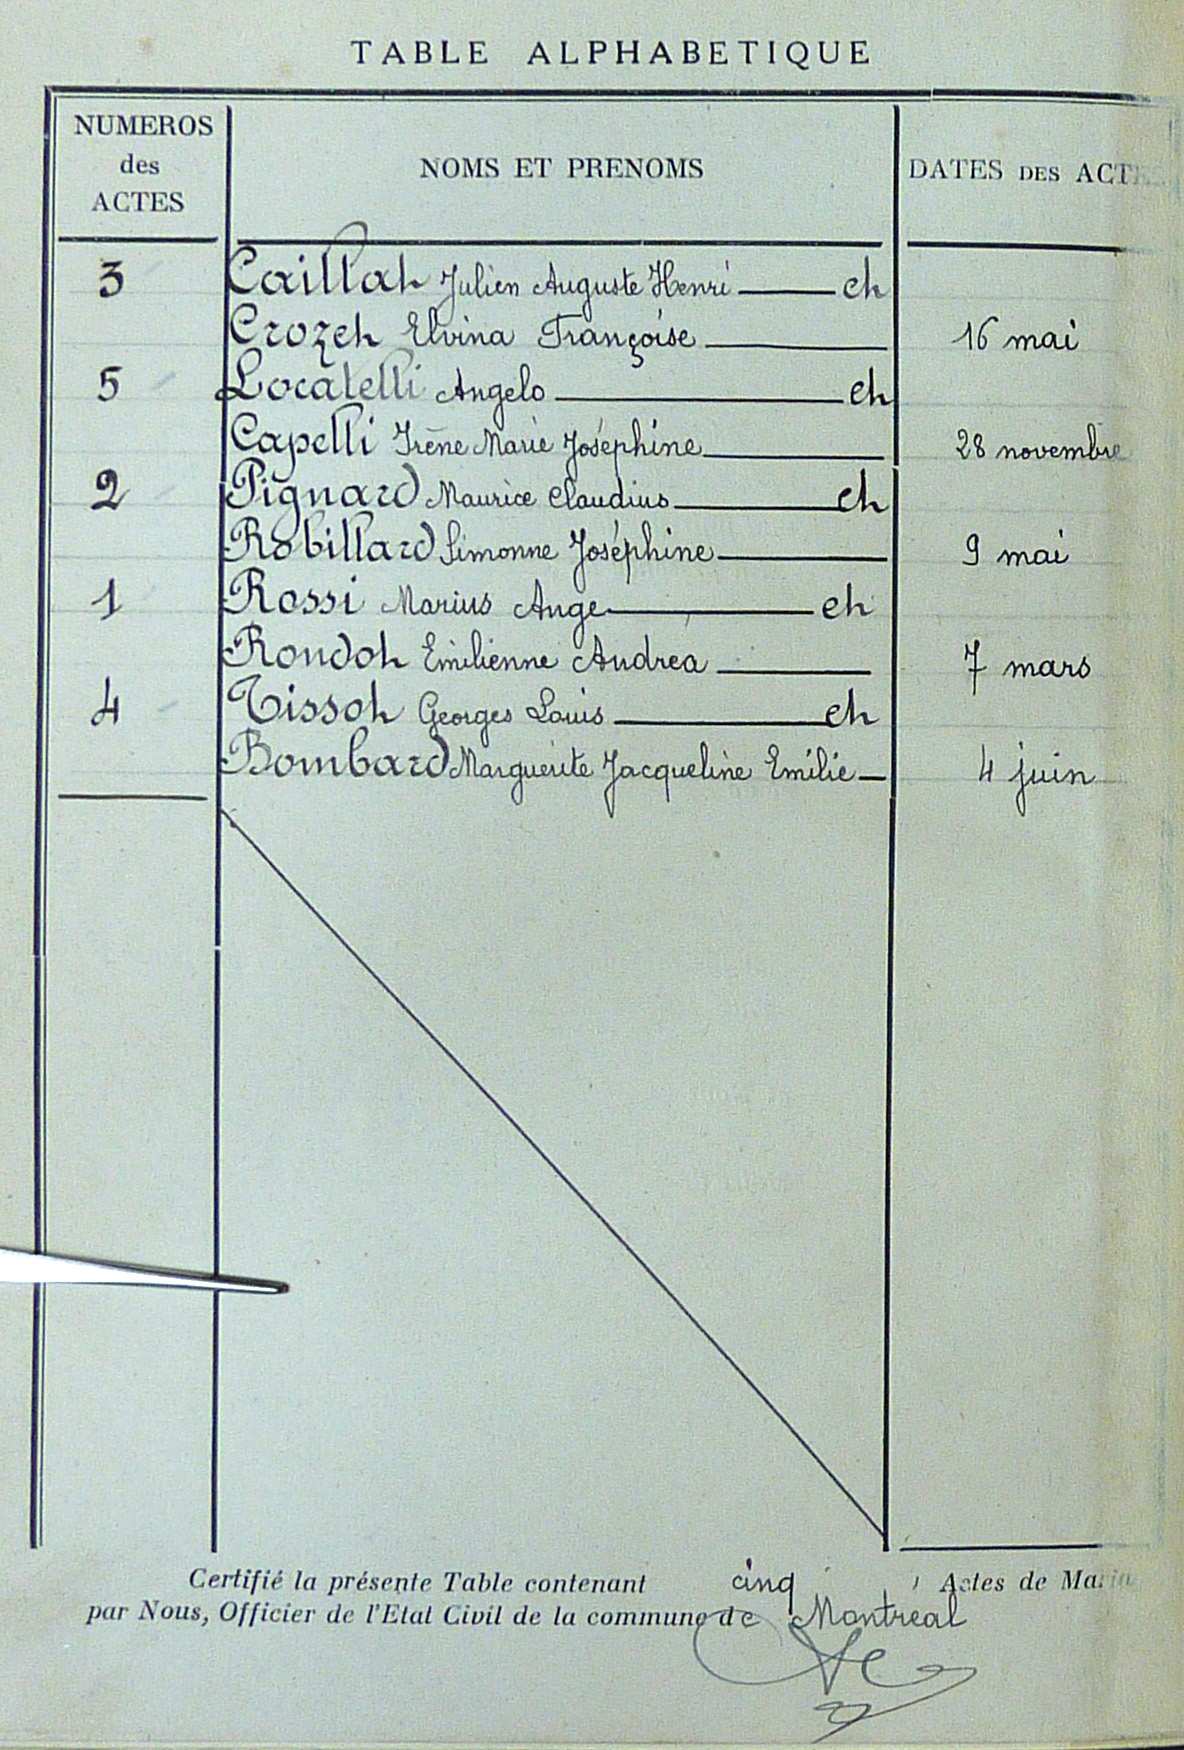 TABLE ALPHABETIQUE
NUMEROS
des
ACTES
NOMS ET PRENOMS
DATES DES ACTES
3 Caillat Julien Auguste Henri et
Crozet Elvina Françoise 16 mai
5 Locatelli Angelo et
Capelli Irène Marie Joséphine 28 novembre
2 Pignard Maurice Claudius et
Robillard Simonne Joséphine 9 mai
1 Rossi Marius Ange et
Rondot Emilienne Andrea 7 mars
4 Tissot Georges Louis et
Bombard Marguerite Jacqueline Emilie 4 juin
Certifié la présente Table contenant cinq Actes de Maria
par Nous, Officier de l'Etat Civil de la commune de Montreal